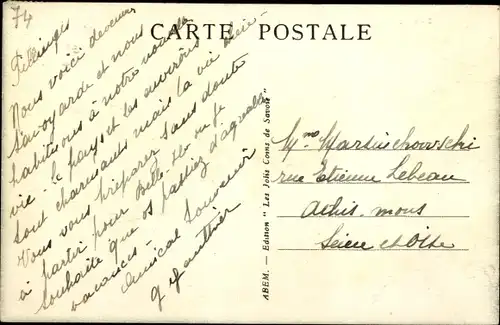 74
CARTE POSTALE
Fillinges
Nous voici devenus
savoyarde et nous
habituons à notre nouvelle
vie : le pays et les environs
sont charmants mais la vie chère -
Vous vous préparez sans doute
à partir pour Belle-Ile ou je
souhaite que vs passiez d'agréables
vacances -
Amical souvenir
ABEM. — Edition " Les Jolis Coins de Savoie "
Mme
rue Etienne Lebeau
Athis-mons
Seine et Oise